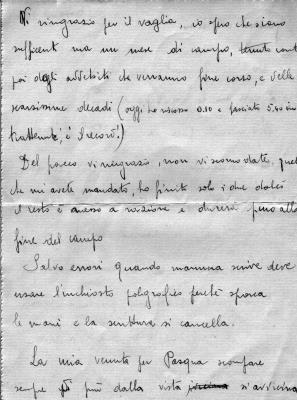 Vi ringrazio per il vaglia, io spero che siano
sufficenti ma un mese di campo, tenuto cont
poi degli addebiti che verranno fine corso, e delle
scarsissime decadi (oggi ho riscosso 0.10 e lasciato 5.40
trattenute, è il record!)
Del pacco vi ringrazio, non vi scomodate, quel
che mi avete mandato, ho finito solo i due dolci
il resto è ancora a
fine del campo
Salvo errori quando mamma scrive deve
usare l'inchiostro poligrafico perchè sporca
le mani e la scrittura si cancella.
La mia venuta per Pasqua scompare
sempre più dalla vista si avvicina